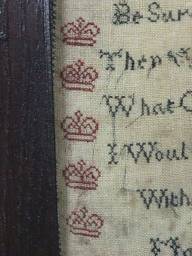 Be Sur
They
What C
I Woul
With